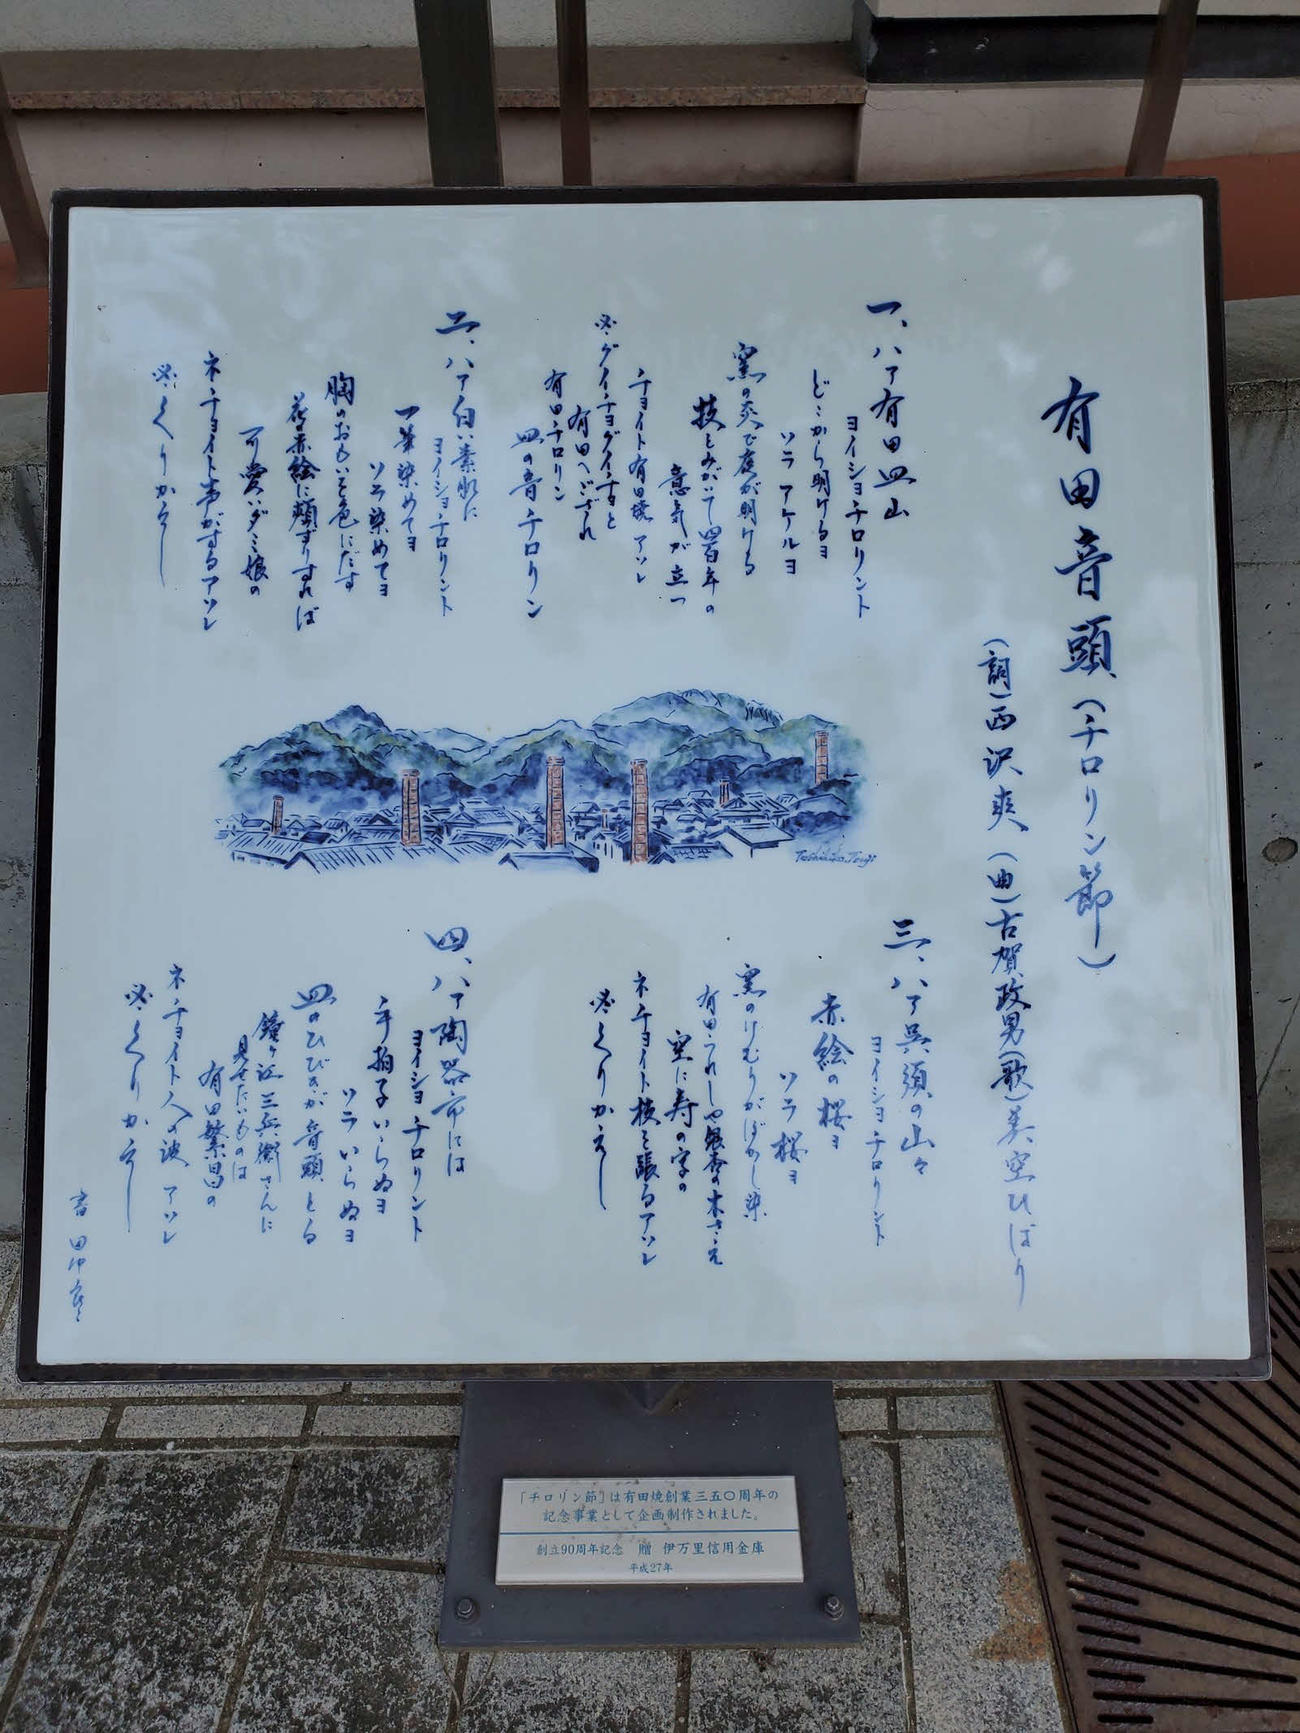 有田音頭(チロリン節)
(詞)西沢爽 (曲)古賀政男(歌)美空ひばり
一、ハァ有田皿山
ヨイショチロリント
どこから明けるヨ
ソラ アケルヨ
窯の炎で夜が明ける
技をみがいて四百年の
意気が立つ
チョイト有田焼 アソレ
※グイチョグイチョと
有田へござれ
有田チロリン
皿の音チロリン
二、ハァ白い素肌に
ヨイショチロリント
一筆染めてヨ
ソラ染めてヨ
胸のおもいを色にだす
花の赤絵に頬ずりすれば
可愛いダミ娘の
ネチョイト声がするアソレ
※くりかえし
三、ハァ呉須の山々
ヨイショチロリント
赤絵の桜ヨ
ソラ桜ヨ
窯のけむりがぼかし染
有田うれしや銀杏の木さえ
空に寿の字の
ネチョイト枝を張るアソレ
※くりかえし
四、ハァ陶器市には
ヨイショチロリント
手拍子いらぬヨ
ソラいらぬヨ
皿のひびきが音頭とる
鐘ヶ江三兵衛さんに
見せたいものは
有田繁昌の
ネチョイト人の波 アソレ
※くりかえし
書 田中
Toshihiko Tsuji
「チロリン節」は有田焼創業三五〇周年の
記念事業として企画制作されました。
創立90周年記念 贈 伊万里信用金庫
平成27年